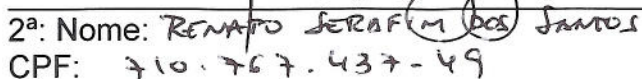 2ª: Nome: RENATO SERAFIM DOS SANTOS
CPF: 710.767.437-49